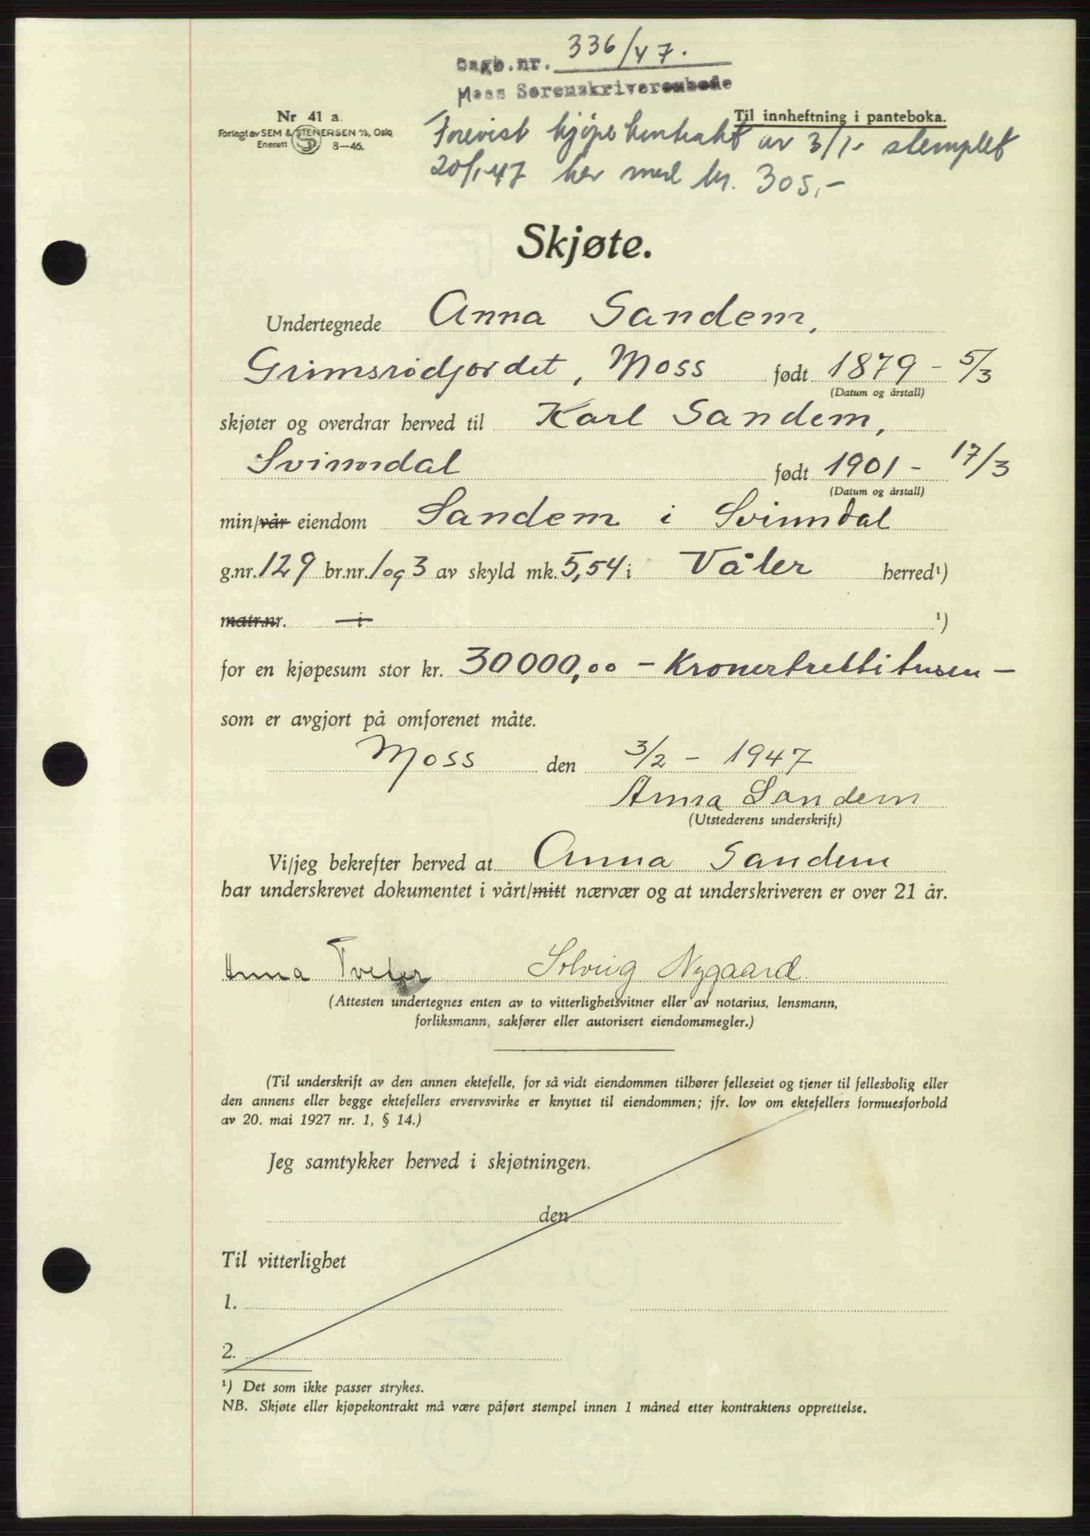 Dagb.nr. 336/47.
Moss Sorenskriverembede
Nr 41 a.
Til innheftning i panteboka.
Forlagt av SEM & STENERSEN A/S, Oslo
Enerett 8-46.
Forevist kjøpekontrakt av 3/1- stemplet
20/1-47 her med kr. 305,-
Skjøte.
Undertegnede Anna Sandem,
Grimsrødjordet, Moss født 1879 - 5/3
(Datum og årstall)
skjøter og overdrar herved til Karl Sandem,
Svinndal født 1901 - 17/3
(Datum og årstall)
min/vår eiendom Sandem i Svinndal
g.nr. 129 br.nr. 1 og 3 av skyld mk. 5,54 i Våler herred¹)
matr.nr. i ¹)
for en kjøpesum stor kr. 30000,00 - Kronertrettitusen -
som er avgjort på omforenet måte.
Moss den 3/2 - 1947
Anna Sandem
(Utstederens underskrift)
Vi/jeg bekrefter herved at Anna Sandem
har underskrevet dokumentet i vårt/mitt nærvær og at underskriveren er over 21 år.
Anna Tveter Solveig Nygaard
(Attesten undertegnes enten av to vitterlighetsvitner eller av notarius, lensmann,
forliksmann, sakfører eller autorisert eiendomsmegler.)
(Til underskrift av den annen ektefelle, for så vidt eiendommen tilhører felleseiet og tjener til fellesbolig eller
den annens eller begge ektefellers ervervsvirke er knyttet til eiendommen; jfr. lov om ektefellers formuesforhold
av 20. mai 1927 nr. 1, § 14.)
Jeg samtykker herved i skjøtningen.
den
Til vitterlighet
1.
2.
¹) Det som ikke passer strykes.
NB. Skjøte eller kjøpekontrakt må være påført stempel innen 1 måned etter kontraktens opprettelse.